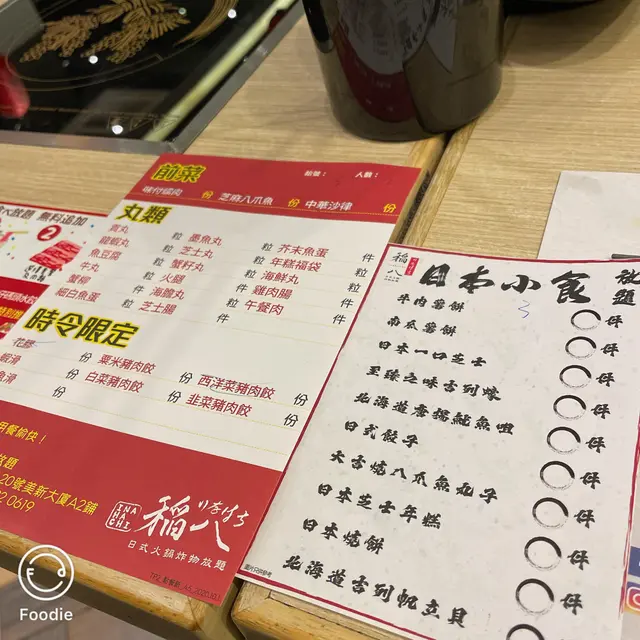 放題 無料追加
2
前菜
枱號： 人數：
味付螺肉 份 芝麻八爪魚 份 中華沙律 份
丸類
貢丸 粒 墨魚丸 粒 芥末魚蛋 件
龍蝦丸 粒 芝士丸 粒 年糕福袋 件
魚豆腐 粒 蟹籽丸 粒 海鮮丸 粒
牛丸 粒 火腿 件 雞肉腸 件
蟹柳 件 海膽丸 粒 午餐肉 件
細白魚蛋 粒 芝士腸 件
時令限定
份 粟米豬肉餃 份 西洋菜豬肉餃 份
蝦滑 份 白菜豬肉餃 份 韭菜豬肉餃 份
魚滑 份
用餐愉快！
放題
20號美新大廈A2鋪
2 0619
INAHACHI
稲八
いなはち
日式火鍋炸物放題
稲八
日本小食
放題
3
牛肉薯餅 件
南瓜薯餅 件
日本一口芝士 件
至臻之味吉列蠔 件
北海道唐揚魷魚咀 件
日式餃子 件
大吉燒八爪魚丸子 件
日本芝士年糕 件
日本燒餅 件
北海道吉列帆立貝
圖片只供參考
Foodie